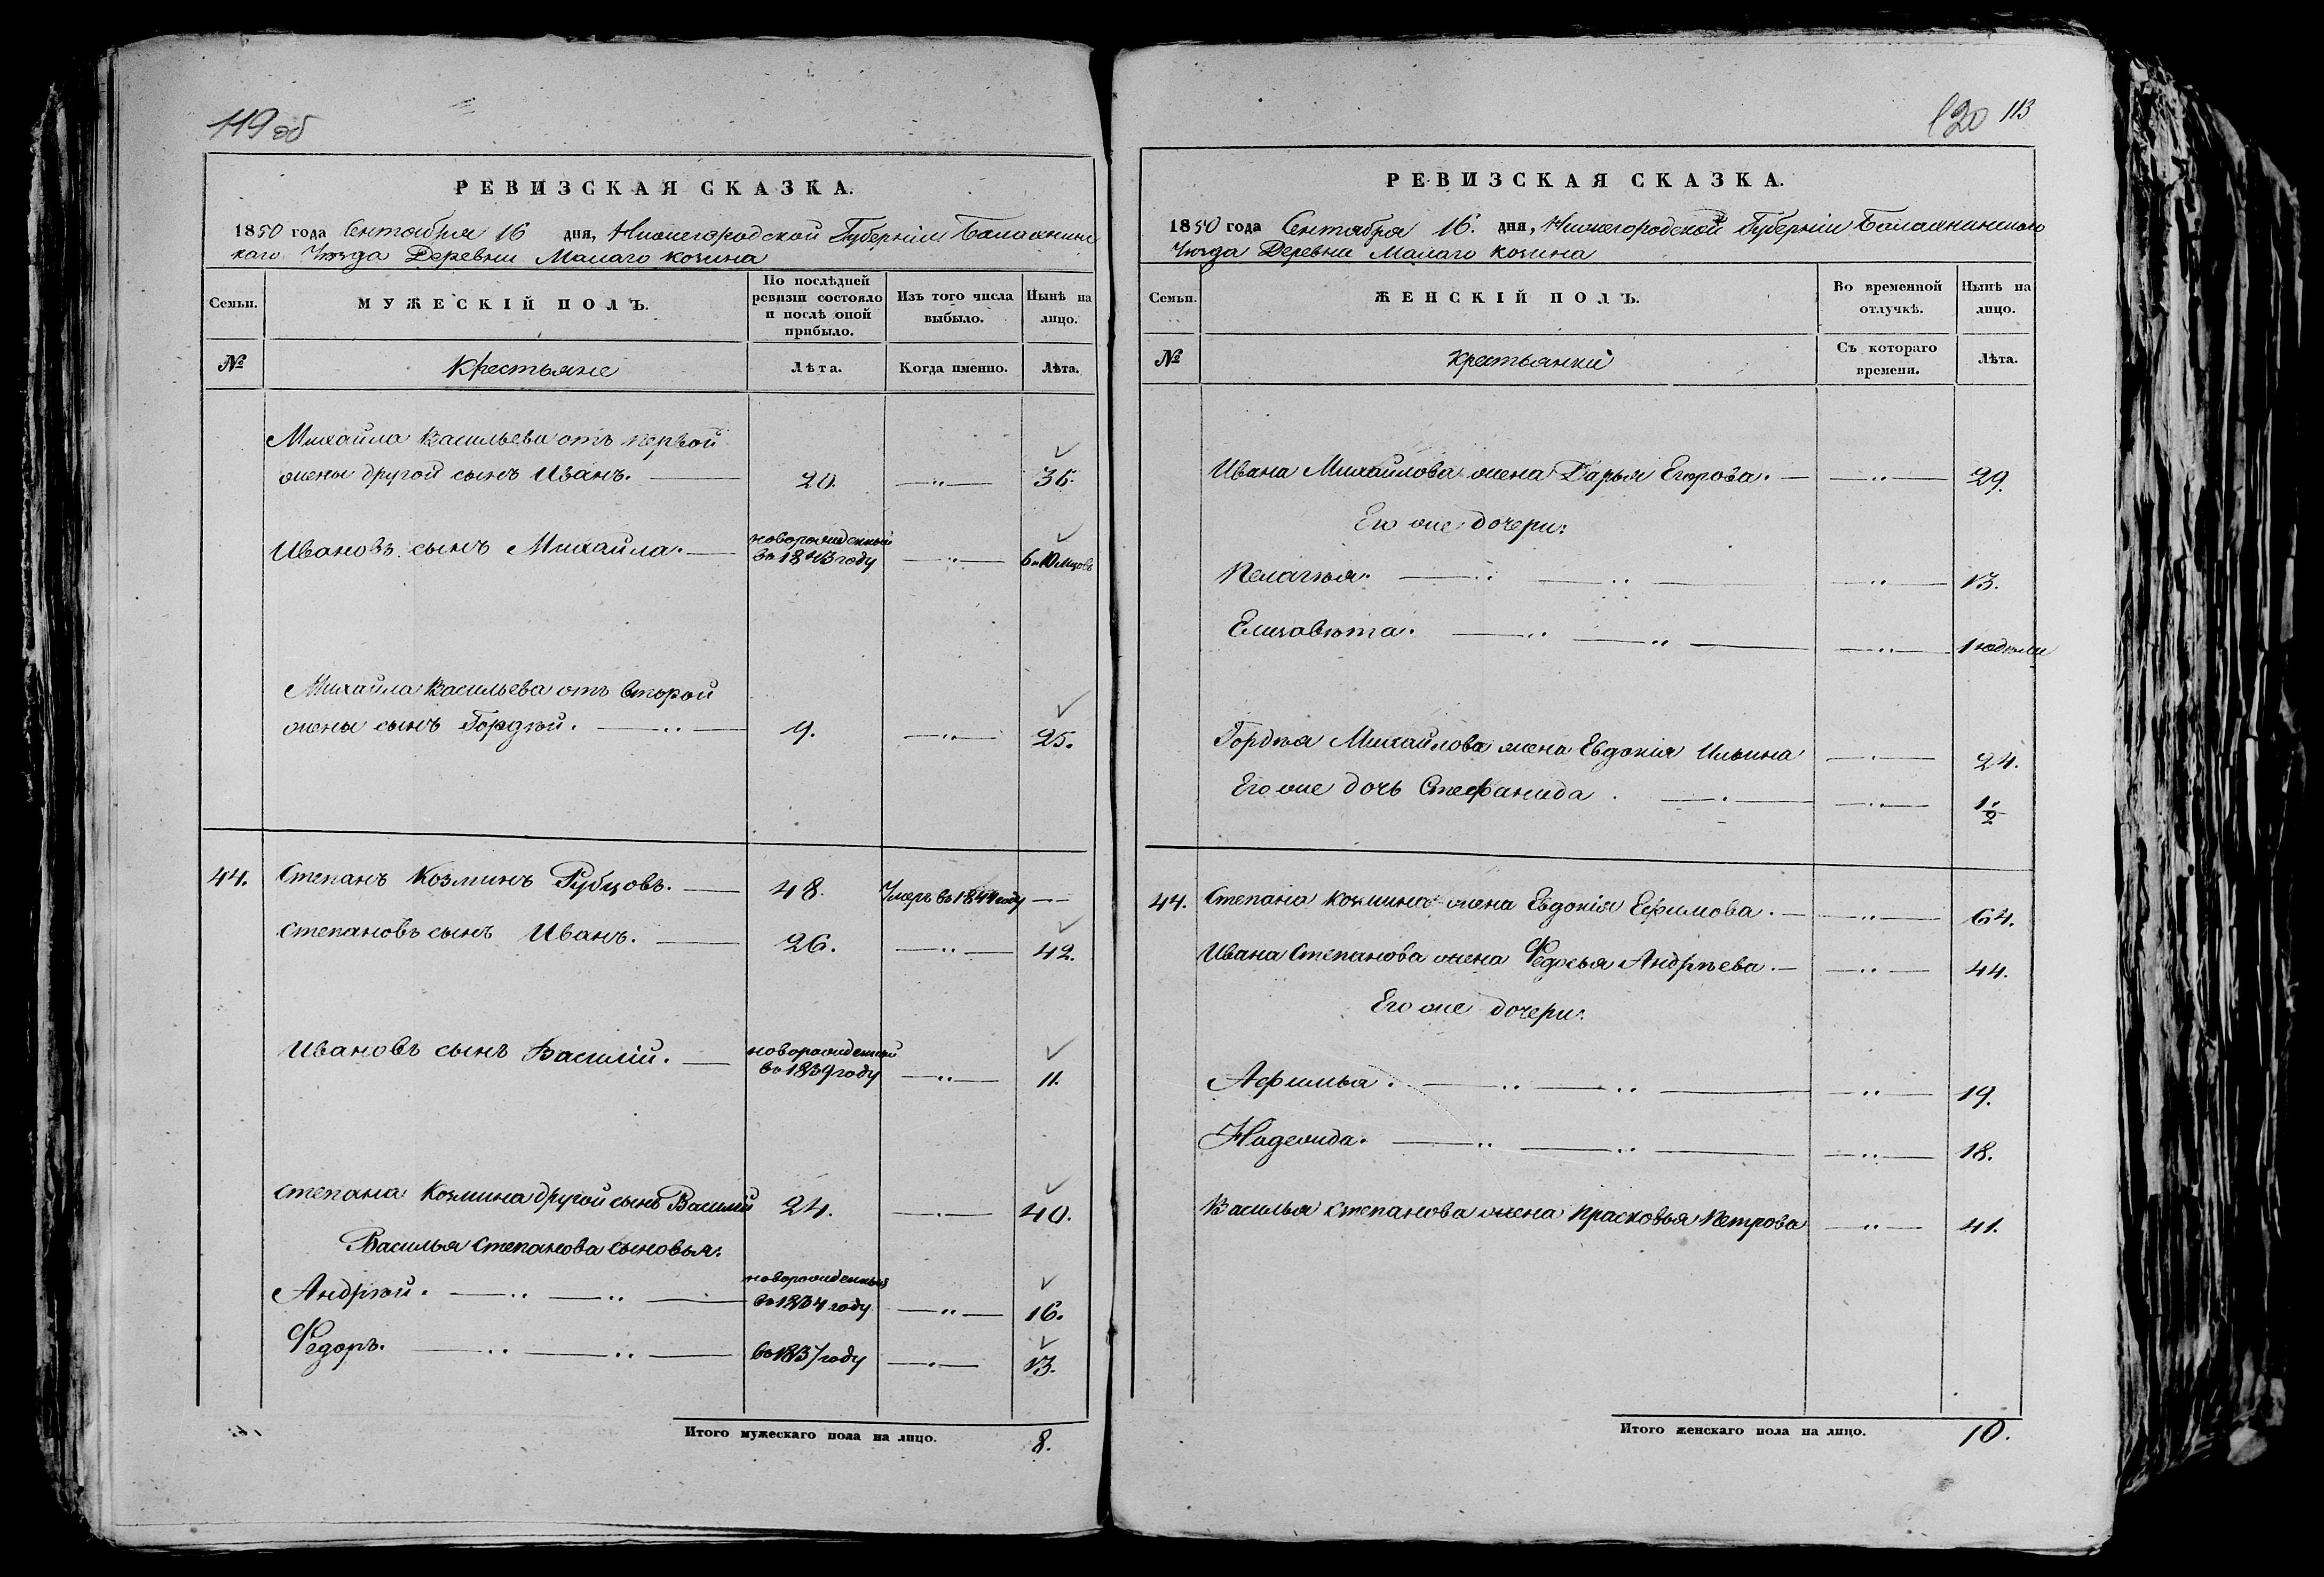 119 об
РЕВИЗСКАЯ СКАЗКА.
1850 года Сентября 16 дня, Нижегородской Губерніи Балахнин
скаго Уѣзда Деревни Малаго Козина
Семьи.
МУЖЕСКІЙ ПОЛЪ.
По послѣдней
ревизіи состояло
и послѣ оной
прибыло.
Изъ того числа
выбыло.
Нынѣ на
лицо.
№
Крестьяне
Лѣта.
Когда именно.
Лѣта.
Михайла Васильева отъ первой
жены другой сынъ Иванъ. 20. 36.
Ивановъ сынъ Михайла. новорожденный
въ 1843 году 6 и 10 мцовъ
Михайла Васильева отъ второй
жены сынъ Гордѣй. 9. 25.
44. Степанъ Козминъ Рубцовъ. 48. Умеръ въ 1844 году
Степановъ сынъ Иванъ. 26. 42.
Ивановъ сынъ Василій. новорожденный
въ 1839 году 11.
Степана Козмина другой сынъ Василій 24. 40.
Василья Степанова сыновья:
Андрѣй. новорожденный
въ 1834 году 16.
Федоръ. въ 1837 году 13.
Итого мужескаго пола на лицо. 8.
120 113
РЕВИЗСКАЯ СКАЗКА.
1850 года Сентября 16. дня, Нижегородской Губерніи Балахнинскаго
Уѣзда Деревни Малаго Козина
Семьи.
ЖЕНСКІЙ ПОЛЪ.
Во временной
отлучкѣ.
Нынѣ на
лицо.
№
Крестьянки
Съ котораго
времени.
Лѣта.
Ивана Михайлова жена Дарья Егорова. 29.
Его же дочери:
Пелагѣя. 13.
Елизавѣта. 1
Гордѣя Михайлова жена Евдокія Ильина 24.
Его же дочь Стефанида. 1/2
44. Степана Козмина жена Евдокія Ефимова. 64.
Ивана Степанова жена Федосья Андрѣева. 44.
Его же дочери:
Афимья. 19.
Надежда. 18.
Василья Степанова жена Прасковья Петрова 41.
Итого женскаго пола на лицо. 10.